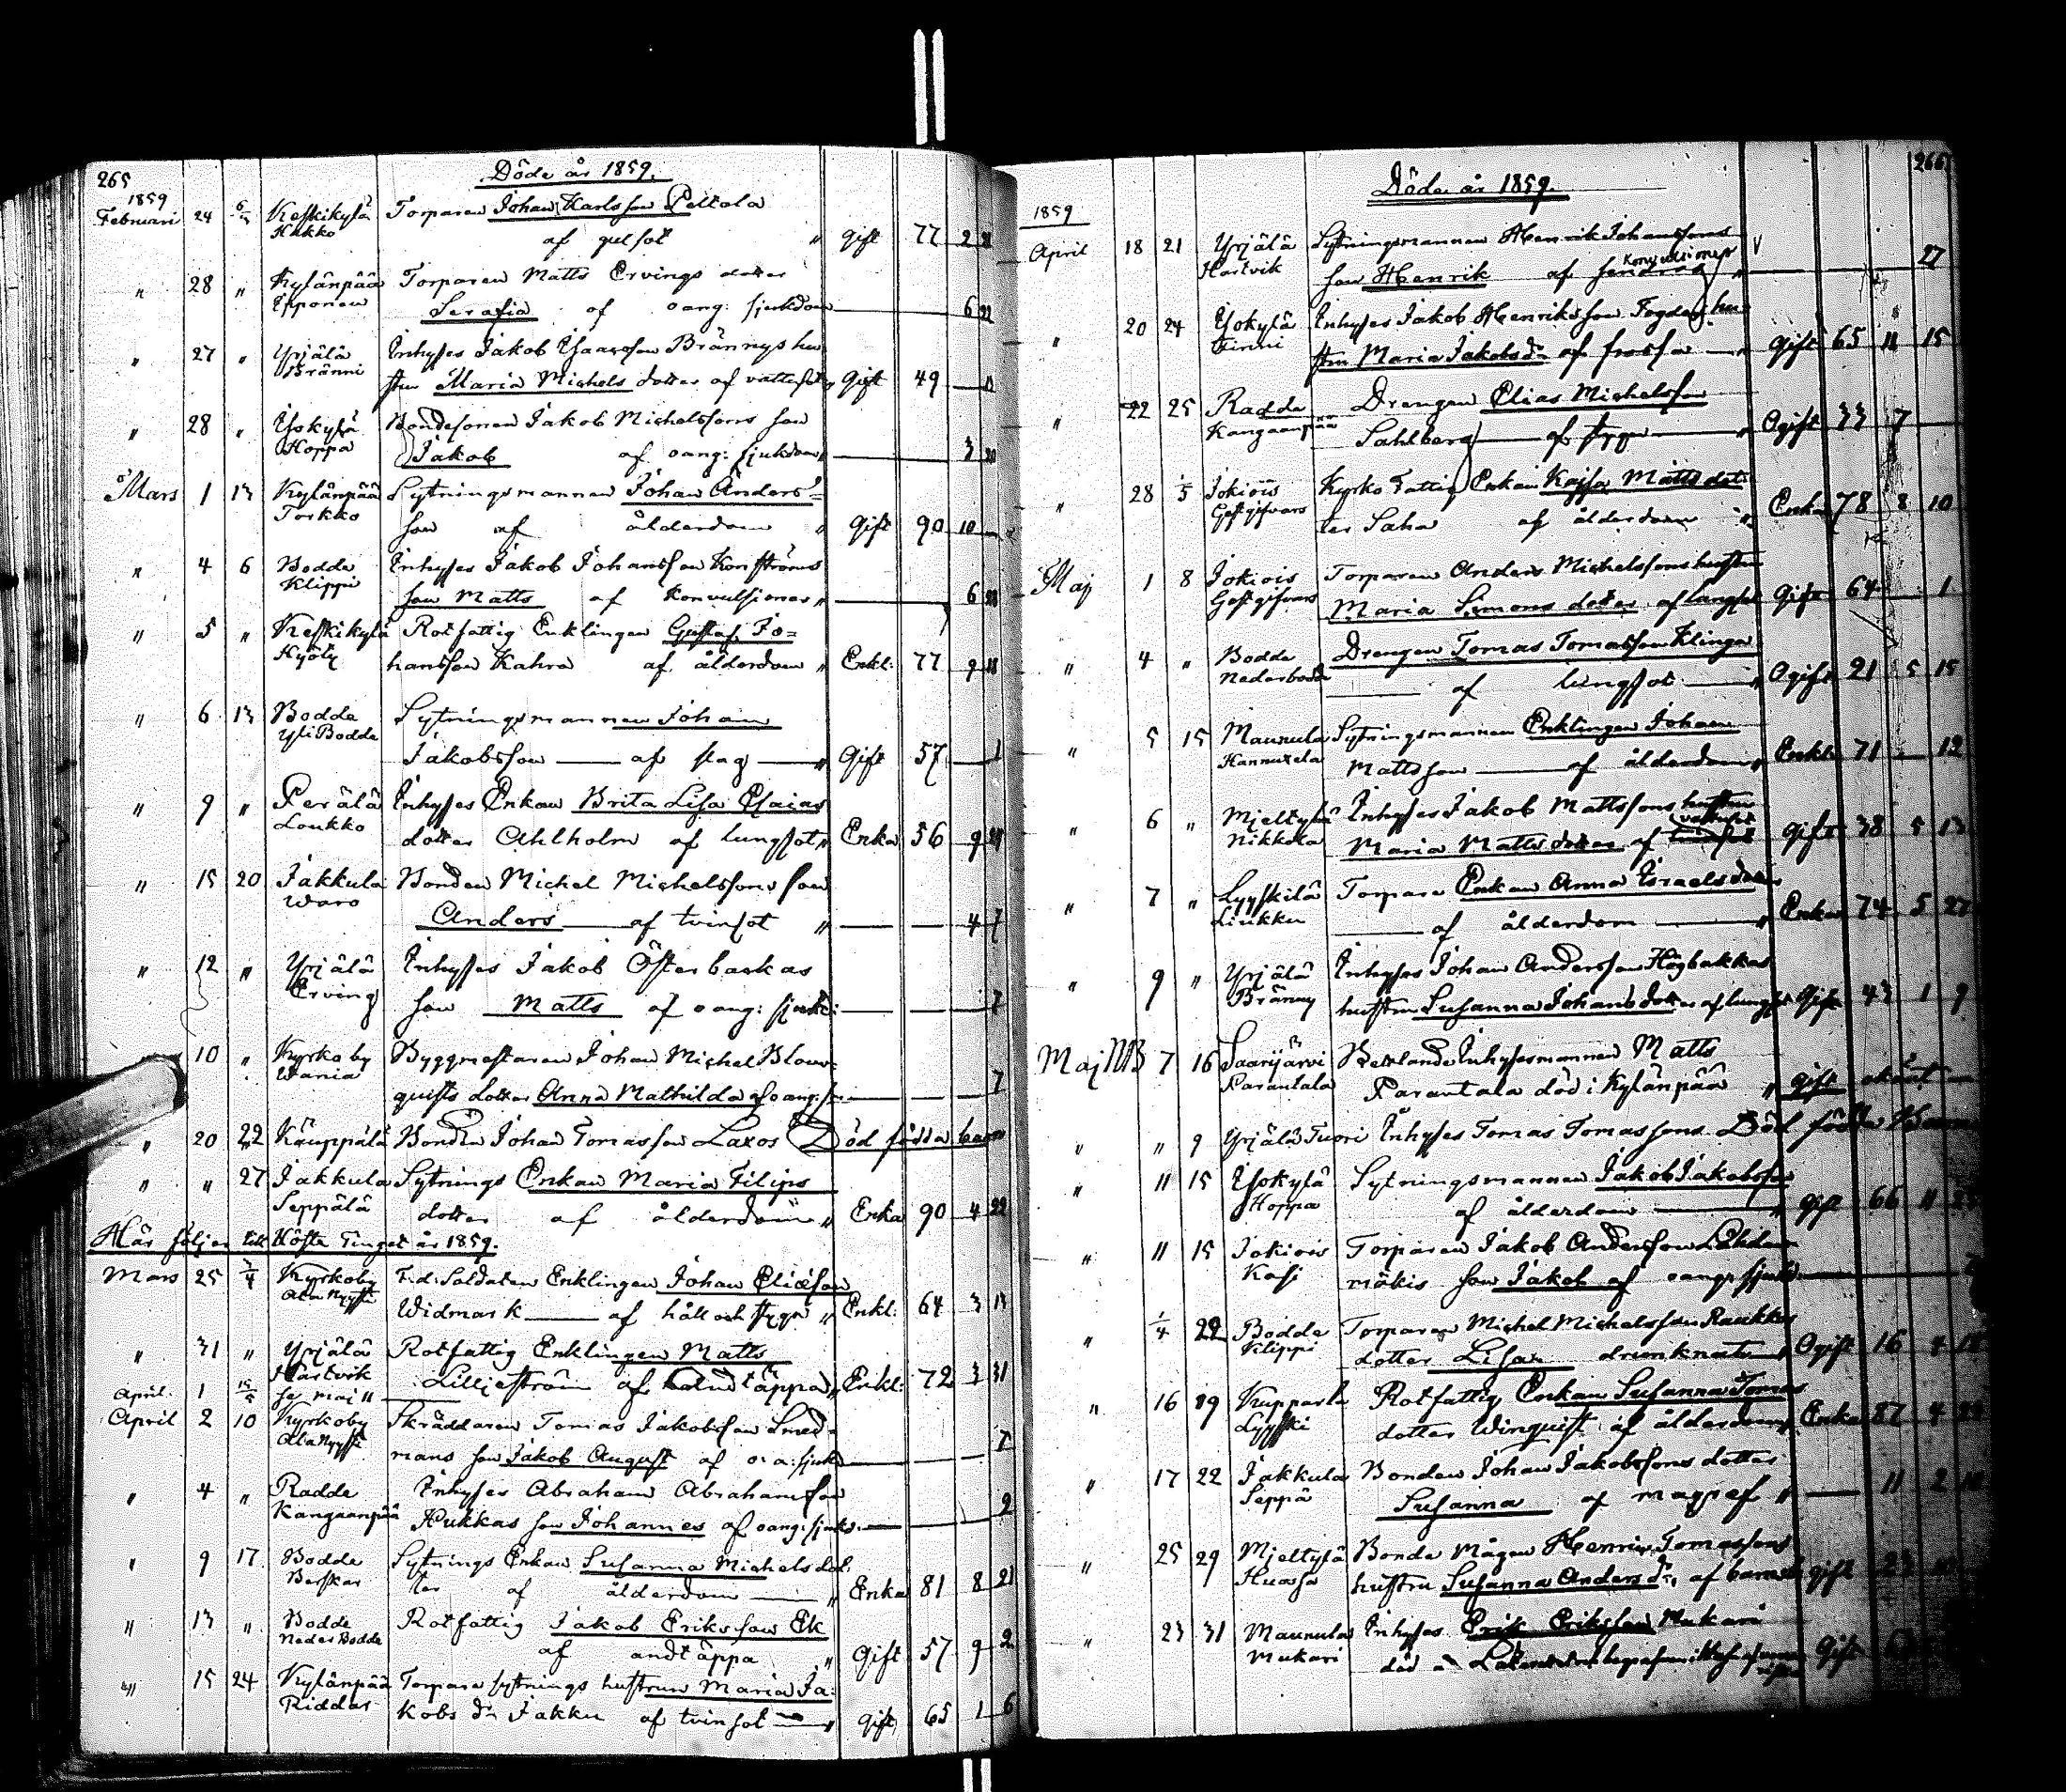 265
Döde år 1859.
1859
Februari 24 6/3 Keskikylä Torparen Johan Karlsson Peltola
Hakko af gulsot " gift 77 2
" 28 " Kylänpää Torparen Matts Ervings dotter
Ipponen Serafia af oang: sjukdom 6 22
" 27 " Yrjälä Inhyses Jakob Isaacsson Brännys hu
Bränni stru Maria Michels dotter af vattusot " Gift 49
" 28 " Yokylä Bondesonen Jakob Michelssons son
Hoppa Jakob af oang: sjukdom " 3 20
Mars 1 13 Kylänpää Sytningsmannen Johan Anders=
Torkko son af ålderdom " Gift 90 10
" 4 6 Bodde Inhyses Jakob Johansson Korströms
Klippi son Matts af Konvulsioner " 6 28
" 5 " Keskikylä Rotfattig Enklingen Gustaf Jo=
Hyöty hansson Kahra af ålderdom " Enkl: 77 9 18
" 6 13 Bodde Sytningsmannen Johan
Yli Bodde Jakobsson af slag " Gift 57 1
" 9 " Perälä Inhyses Enkan Brita Lisa Esaias
Loukko dotter Ahlholm af lungsot " Enka 56 9
" 15 20 Jakkula Bonden Michel Michelssons son
Waro Anders af tvinsot " 4 7
" 12 " Yrjälä Inhyses Jakob Österbackas
Erving son Matts af oang: sjukd: 7
10 " Kyrkoby Byggmestaren Johan Michel Blom=
Wania quists dotter Anna Mathilda af oang: sj: 7
" 20 22 Käuppälä Bonden Johan Tomasson Laxos Död födda barn
" " 27 Jakkula Sytnings Enkan Maria Filips
Seppälä dotter af ålderdom " Enka 90 4 22
Här följer till Hösta Tinget år 1859.
Mars 25 3/4 Kyrkoby F.d. Soldaten Enklingen Johan Eliasson
Ala Nyysti Widmark af håll och stygn " Enkl: 64 3 13
" 31 " Yrjälä Rotfattig Enklingen Matts
Hartvik Lilljeström af andtäppa " Enkl: 72 3 31
April 1 15/5 se maj "
April 2 10 Kyrkoby Skräddaren Tomas Jakobsson Smed=
Ala Nyysti mans son Jakob August af o: a: sjukd 7
" 4 " Radde Inhyses Abraham Abrahamsson
Kangaanpää Hukkas son Johannes af oang: sjukd: 2
" 9 17 Bodde Sytnings Enkan Susanna Michels dot:
Beskar ter af ålderdom " Enka 81 8 21
" 13 " Bodde Rotfattig Jakob Eriksson Ek
Neder Bodde af andtäppa " Gift 57 9 2
" 15 24 Kylänpää Torpare sytnings hustrun Maria Ja:
Riddar kobs dr Jakku af tvinsot " gift 65 1 6
266
Döde år 1859.
1859
April 18 21 Yrjälä Sytningsmannen Henrik Johanssons
Hartvik son Henrik af Konvulsioner " 27
" 20 24 Yokylä Inhyses Jakob Henriksson Fogdes hu
Finni stru Maria Jakobs dr af frossa " Gift 65 11 15
" 22 25 Radde Drengen Elias Michelsson
Kangaanpää Sahlberg af stygn " Ogift 33 7
" 28 1/5 Jokiois Kyrko Fattig Enkan Kajsa Matts dot
Gestgifvars ter Saha af ålderdom " Enka 78 8 10
Maj 1 8 Jokiois Torparen Anders Michelssons hustru
Gestgifvars Maria Simons dotter af lungsot Gift 64 1
" 4 " Bodde Drengen Tomas Tomasson Klinga
Nederbodde af lungsot " Ogift 21 5 15
" 5 15 Maunula Sytningsmannen Enklingen Johan
Hannuxela Mattsson af ålderdom " Enkl: 71 12
" 6 " Mjeltylä Inhyses Jakob Mattssons hustru
Nikkola Maria Matts dotter af vattusot gift 38 5 13
" 7 " Lyyskilä Torpare Enkan Anna Israels dotter
Liukku af ålderdom " Enka 74 5 27
" 9 " Yrjälä Inhyses Johan Andersson Högbakkas
Bränny hustru Susanna Johans dotter af lungsot Gift 43 1 9
Maj NB 7 16 Saarijärvi Resande Inhysesmannen Matts
Parantala Parantala död i Kylänpää " gift okänt
" " 9 Yrjälä Tuori Inhyses Tomas Tomassons Död födda Barn
" 11 15 Yokylä Sytningsmannen Jakob Jakobsson
Hoppa af ålderdom " gift 66 11
" 11 15 Jokiois Torparen Jakob Andersson
Kasi mäkis son Jakob af oang: sjukd:
" 1/4 22 Bodde Torparen Michel Michelsson Raukkas
Klippi dotter Lisa drunknat " Ogift 16 4 18
" 16 19 Kupparla Rotfattig Enkan Susanna Tomas
Lyyski dotter Winquist af ålderdom Enka 87 4
" 17 22 Jakkula Bonden Johan Jakobssons dotter
Seppä Susanna af magref " 11 2
" 25 29 Mjeltylä Bonde Mågen Henrik Tomassons
Huassa hustru Susanna Anders dr, af barnsb gift 23
" 23 31 Maunula Inhyses Erik Eriksson Mukari
Mukari död Gift